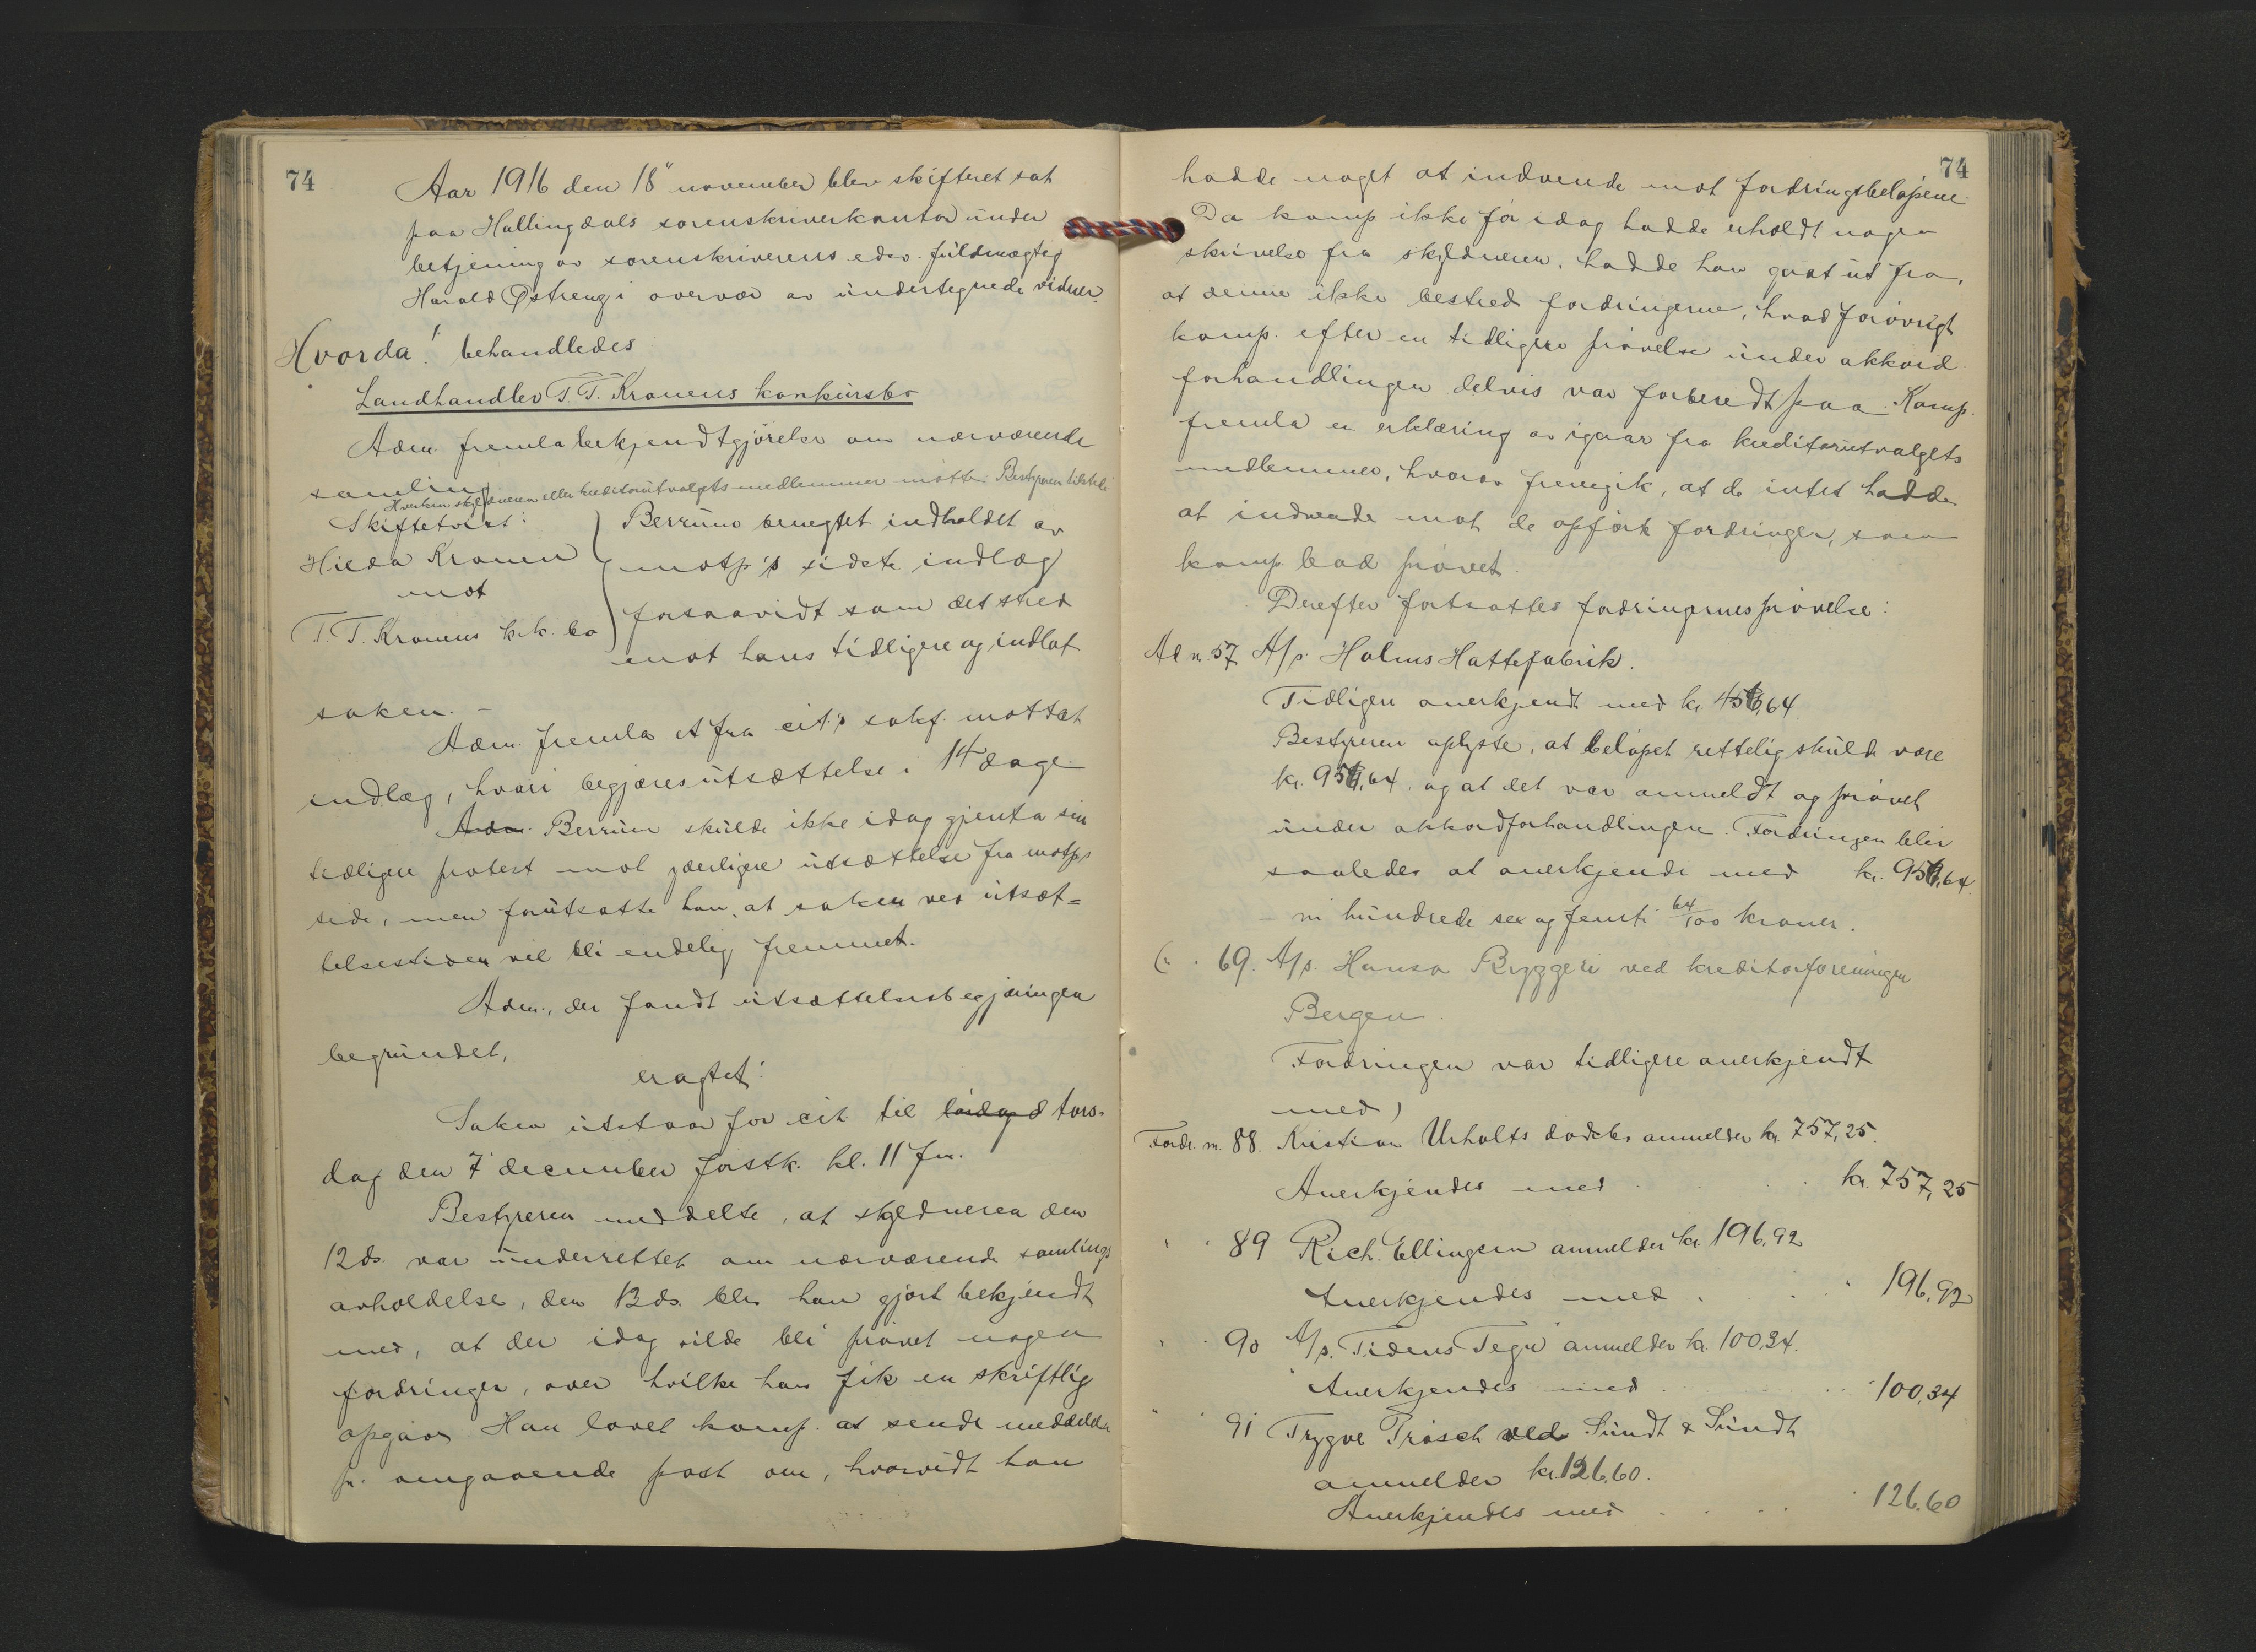 74
Aar 1916 den 18" november blev skifteret sat
paa Hallingdals sorenskriverkontor under
betjening av sorenskriverens edsv. fuldmægtig
Harald Østreng i overvær av undertegnede vidner.
Hvorda! behandledes
Landhandler T. T. Kronens konkursbo
Adm. fremla bekjendtgjørelse om nærværende
samling
Hverken skyldneren eller kreditorutvalgets medlemmer møtte. Bestyreren tilstede
Skiftetvist:
Hilda Kronen
mot
T. T. Kronens k.k. bo
Berrum benegtet indholdet av
motp's sidste indlæg
forsaavidt som det stred
mot hans tidligere og indlot
saken. -
Adm. fremla et fra cit's sakf. mottat
indlæg, hvori begjæres utsættelse i 14 dage.
Adm. Berrum skulde ikke idag gjenta sin
tidligere protest mot yderligere utsættelse fra motp's
side, men forutsatte han, at saken ved utsæt=
telsestiden vil bli endelig fremmet.
Adm., der fandt utsættelsesbegjæringen
begrundet,
eragtet:
Saken utstaar for cit. til lørdag d tors-
dag den 7 december førstk. kl. 11 fm.
Bestyreren meddelte, at skyldneren den
12 ds. var underrettet om nærværende samlings
avholdelse, den 13 ds. blev han gjort bekjendt
med, at der idag vilde bli prøvet nogen
fordringer, over hvilke han fik en skriftlig
opgave. Han lovet komp. at sende meddelelse
pr. omgaaende post om, hvorvidt han
74
hadde noget at indvende mot fordringsbeløpene.
Da komp. ikke før idag hadde erholdt nogen
skrivelse fra skyldneren, hadde han gaat ut fra,
at denne ikke bestred fordringerne, hvad forøvrigt
komp. efter en tidligere prøvelse under akkord-
forhandlingen delvis var forberedt paa. Komp.
fremla en erklæring av igaar fra kreditorutvalgets
medlemmer, hvorav fremgik, at de intet hadde
at indvende mot de opførte fordringer, som
komp. bad prøvet.
Derefter fortsattes fordringernes prøvelse:
Ad n. 57 A/s. Holms Hattefabrik.
Tidligere anerkjendt med kr. 456,64
Bestyreren oplyste, at beløpet rettelig skulde være
kr. 956,64, og at det var anmeldt og prøvet
under akkordforhandlingen. Fordringen blir
saaledes at anerkjende med kr. 956,64.
- ni hundrede sex og femti 64/100 kroner.
( " 69. A/s. Hansa Bryggeri ved kreditorforeningen
Bergen.
Fordringen var tidligere anerkjendt
med)
Fordr. n. 88. Kristian Urholts dødsbo anmelder kr. 757,25.
Anerkjendes med . . . kr. 757,25
" " 89 Rich. Ellingsen anmelder kr. 196,92
Anerkjendes med . . . 196,92
" " 90 A/s. "Tidens Tegn" anmelder kr. 100,34.
Anerkjendes med . . . 100,34
" " 91 Trygve Prøsch ved Sundt & Sundt
anmelder kr. 126,60.
Anerkjendes med . . . 126,60